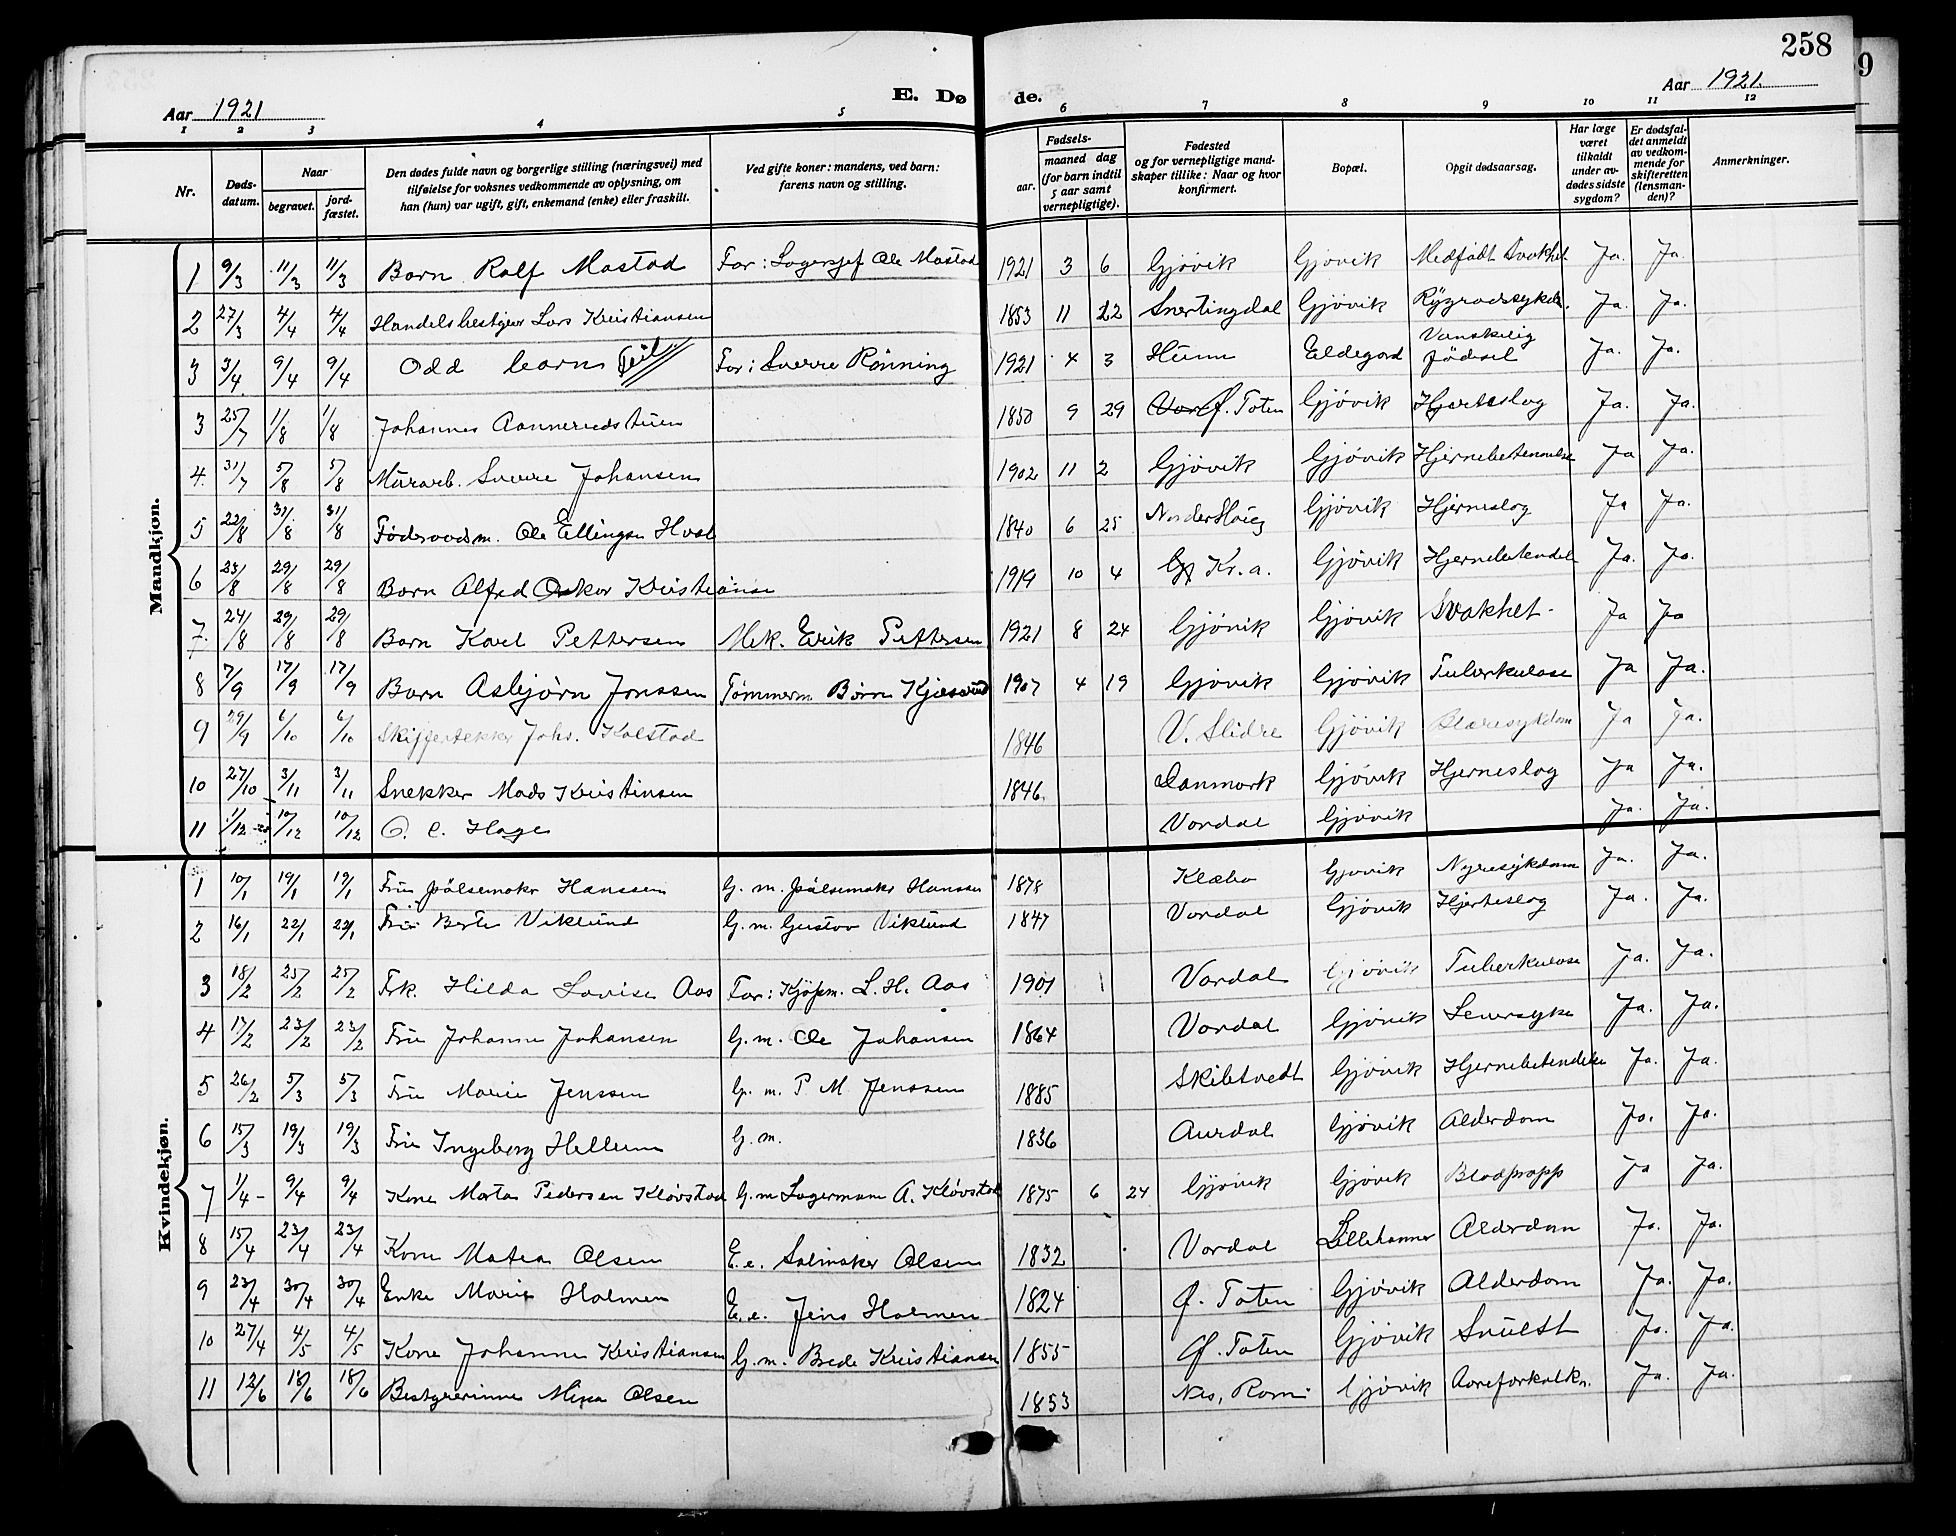 258
9
Aar 1921
E. Dø de.
Aar 1921.
1 2 3 4 5 6 7 8 9 10 11 12
Nr.
Døds-
datum.
Naar
begravet.
jord-
fæstet.
Den dødes fulde navn og borgerlige stilling (næringsvei) med
tilføielse for voksnes vedkommende av oplysning, om
han (hun) var ugift, gift, enkemand (enke) eller fraskilt.
Ved gifte koner: mandens, ved barn:
farens navn og stilling.
Fødsels-
aar.
maaned dag
(for barn indtil
5 aar samt
vernepligtige).
Fødested
og for vernepligtige mand-
skaper tillike: Naar og hvor
konfirmert.
Bopæl.
Opgit dødsaarsag.
Har læge
været
tilkaldt
under av-
dødes sidste
sygdom?
Er dødsfal-
det anmeldt
av vedkom-
mende for
skifteretten
(lensman-
den)?
Anmerkninger.
Mandkjøn.
1 9/3 11/3 11/3 Barn Rolf Mastad Far: Lagersjef Ole Mastad 1921 3 6 Gjøvik Gjøvik Medfødt Svakhet Ja. Ja.
2 27/3 4/4 4/4 Handelsbestyrer Lars Kristiansen 1853 11 22 Snertingdal Gjøvik Rygradssykdo. Ja. Ja.
3 3/4 9/4 9/4 Odd Feil Far: Sverre Rønning 1921 4 3 Hunn Eldegard Vanskelig fødsel Ja. Ja.
3 25/7 1/8 1/8 Johannes Aannerudstuen 1850 9 29 Ø. Toten Gjøvik Hjerteslag Ja. Ja.
4. 31/7 5/8 5/8 Murarb. Sverre Johansen 1902 11 2 Gjøvik Gjøvik Hjernebetennelse Ja Ja.
5 22/8 31/8 31/8 Føderaadsm. Ole Ellingsen Hval 1840 6 25 Gjøvik Hjerneslag Ja Ja.
6 23/8 29/8 29/8 Barn Alfred Oskar Kristiansen 1919 10 4 Kr.a. Gjøvik Hjernebetendelse Ja. Ja.
7. 24/8 29/8 29/8 Barn Karl Pettersen Mek. Erik Pettersen 1921 8 24 Gjøvik Gjøvik Svakhet Ja Ja
8 7/9 17/9 17/9 Barn Asbjørn Jonssen Tømmerm. 1907 4 19 Gjøvik Gjøvik Tuberkulose Ja Ja.
9 29/9 6/10 6/10 Skiffertekker Johs. Kolstad 1846 V. Slidre Gjøvik Blæresykdom Ja Ja.
10 27/10 3/11 3/11 Snekker Mads Kristinsen 1846. Danmark Gjøvik Hjerneslag Ja Ja.
11 1/12 10/12 10/12 O. C. Hage Vardal Gjøvik Ja. Ja.
Kvindekjøn.
1 10/1 19/1 19/1 Fru pølsemaker Hanssen G. m. pølsemaker Hanssen 1878 Klæbo Gjøvik Nyresykdom Ja. Ja.
2 16/1 22/1 22/1 Fru Berte Viklund G. m. Gustav Viklund 1847 Vardal Gjøvik Hjerteslag Ja. Ja.
3 18/2 25/2 25/2 Frk. Hilda Lovise Aas Far: Kjøpm. L. H. Aas 1901 Vardal Gjøvik Tuberkulose Ja. Ja.
4 17/2 23/2 23/2 Fru Johanne Johansen G. m. Ole Johansen 1864 Vardal Gjøvik Leversyke Ja. Ja.
5 26/2 5/3 5/3 Fru Marie Jenssen G. m. P M Jenssen 1885 Skibtvedt Gjøvik Hjernebetendelse Ja. Ja.
6 15/3 19/3 19/3 Fru Ingeborg Hellum G. m. 1836 Aurdal Gjøvik Alderdom Ja. Ja.
7 1/4 9/4 9/4 Kone Marta Pedersen Kløvstad G. m Lagermann A. Kløvstad 1875 6 24 Gjøvik Gjøvik Blodpropp Ja Ja.
8 15/4 23/4 23/4 Kone Matea Olsen E. e. Salmaker Olsen 1832 Vardal Lillehammer Alderdom Ja. Ja.
9 23/4 30/4 30/4 Enke Marie Holmen E. e. Jens Holmen 1824 Ø. Toten Gjøvik Alderdom Ja. Ja.
10 27/4 4/5 4/5 Kone Johanne Kristiansen G. m. Brede Kristiansen 1855 Ø. Toten Gjøvik Svulst Ja. Ja.
11 12/6 18/6 18/6 Bestyrerinne Mina Olsen 1853 Nes, Rom. Gjøvik Aareforkalkn. Ja. Ja.